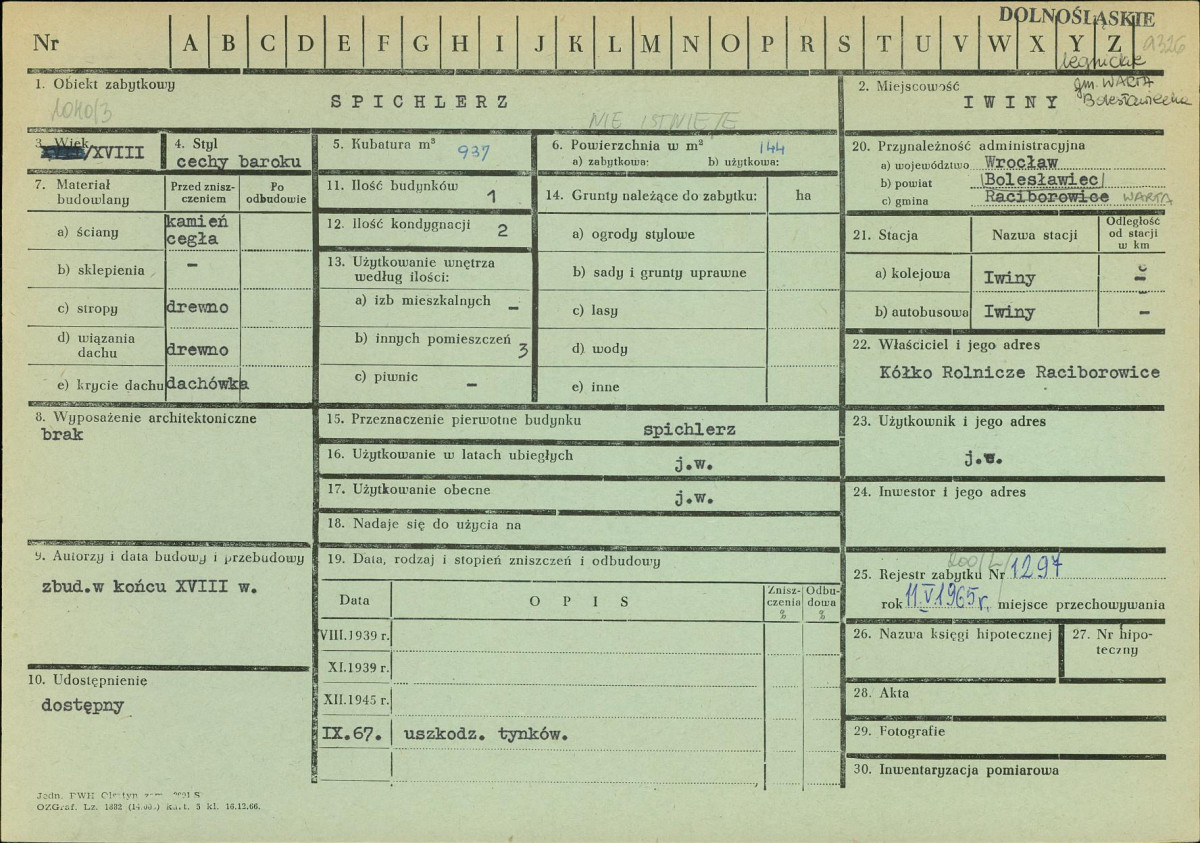 DOLNOŚLĄSKIE
Nr A B C D E F G H I J K L M N O P R S T U V W X Y Z
9326
legnickie
1. Obiekt zabytkowy
1040/3
SPICHLERZ
NIE ISTNIEJE
2. Miejscowość
IWINY
gm. WARTA
Bolesławiecka
3. Wiek
/XVIII
4. Styl
cechy baroku
5. Kubatura m³ 937
6. Powierzchnia w m² 144
a) zabytkowa: b) użytkowa:
7. Materiał budowlany
Przed zniszczeniem
Po odbudowie
a) ściany kamień cegła
b) sklepienia –
c) stropy drewno
d) wiązania dachu drewno
e) krycie dachu dachówka
8. Wyposażenie architektoniczne
brak
9. Autorzy i data budowy i przebudowy
zbud.w końcu XVIII w.
10. Udostępnienie
dostępny
11. Ilość budynków 1
12. Ilość kondygnacji 2
13. Użytkowanie wnętrza według ilości:
a) izb mieszkalnych –
b) innych pomieszczeń 3
c) piwnic –
14. Grunty należące do zabytku: ha
a) ogrody stylowe
b) sady i grunty uprawne
c) lasy
d) wody
e) inne
15. Przeznaczenie pierwotne budynku spichlerz
16. Użytkowanie w latach ubiegłych j.w.
17. Użytkowanie obecne j.w.
18. Nadaje się do użycia na
19. Data, rodzaj i stopień zniszczeń i odbudowy
Data OPIS Zniszczenia % Odbudowa %
VIII.1939 r.
XI.1939 r.
XII.1945 r.
IX.67. uszkodz. tynków.
20. Przynależność administracyjna
a) województwo Wrocław
b) powiat Bolesławiec
c) gmina Raciborowice WARTA
21. Stacja Nazwa stacji Odległość od stacji w km
a) kolejowa Iwiny –
b) autobusowa Iwiny –
22. Właściciel i jego adres
Kółko Rolnicze Raciborowice
23. Użytkownik i jego adres
j.w.
24. Inwestor i jego adres
200/L/
25. Rejestr zabytku Nr 1297
rok 11.V.1965r. miejsce przechowywania
26. Nazwa księgi hipotecznej
27. Nr hipoteczny
28. Akta
29. Fotografie
30. Inwentaryzacja pomiarowa
Jedn. PWH Olsztyn
OZGraf. Lz. 1882 kart. 5 kl. 16.12.66.